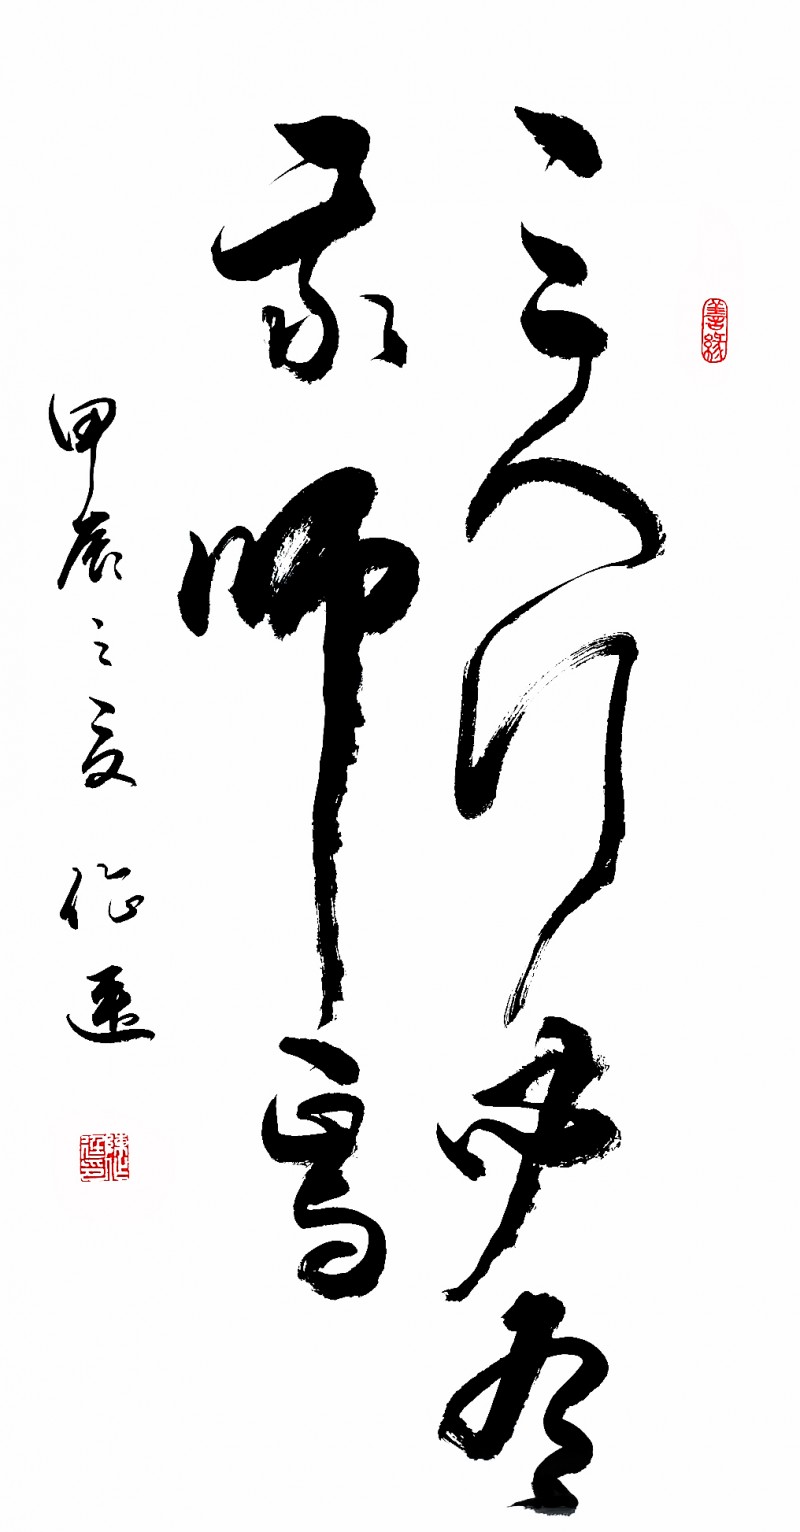 善緣
三人行必有
我师焉
甲辰之夏 作